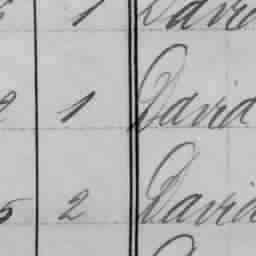 1 David
1 David
5 2 David